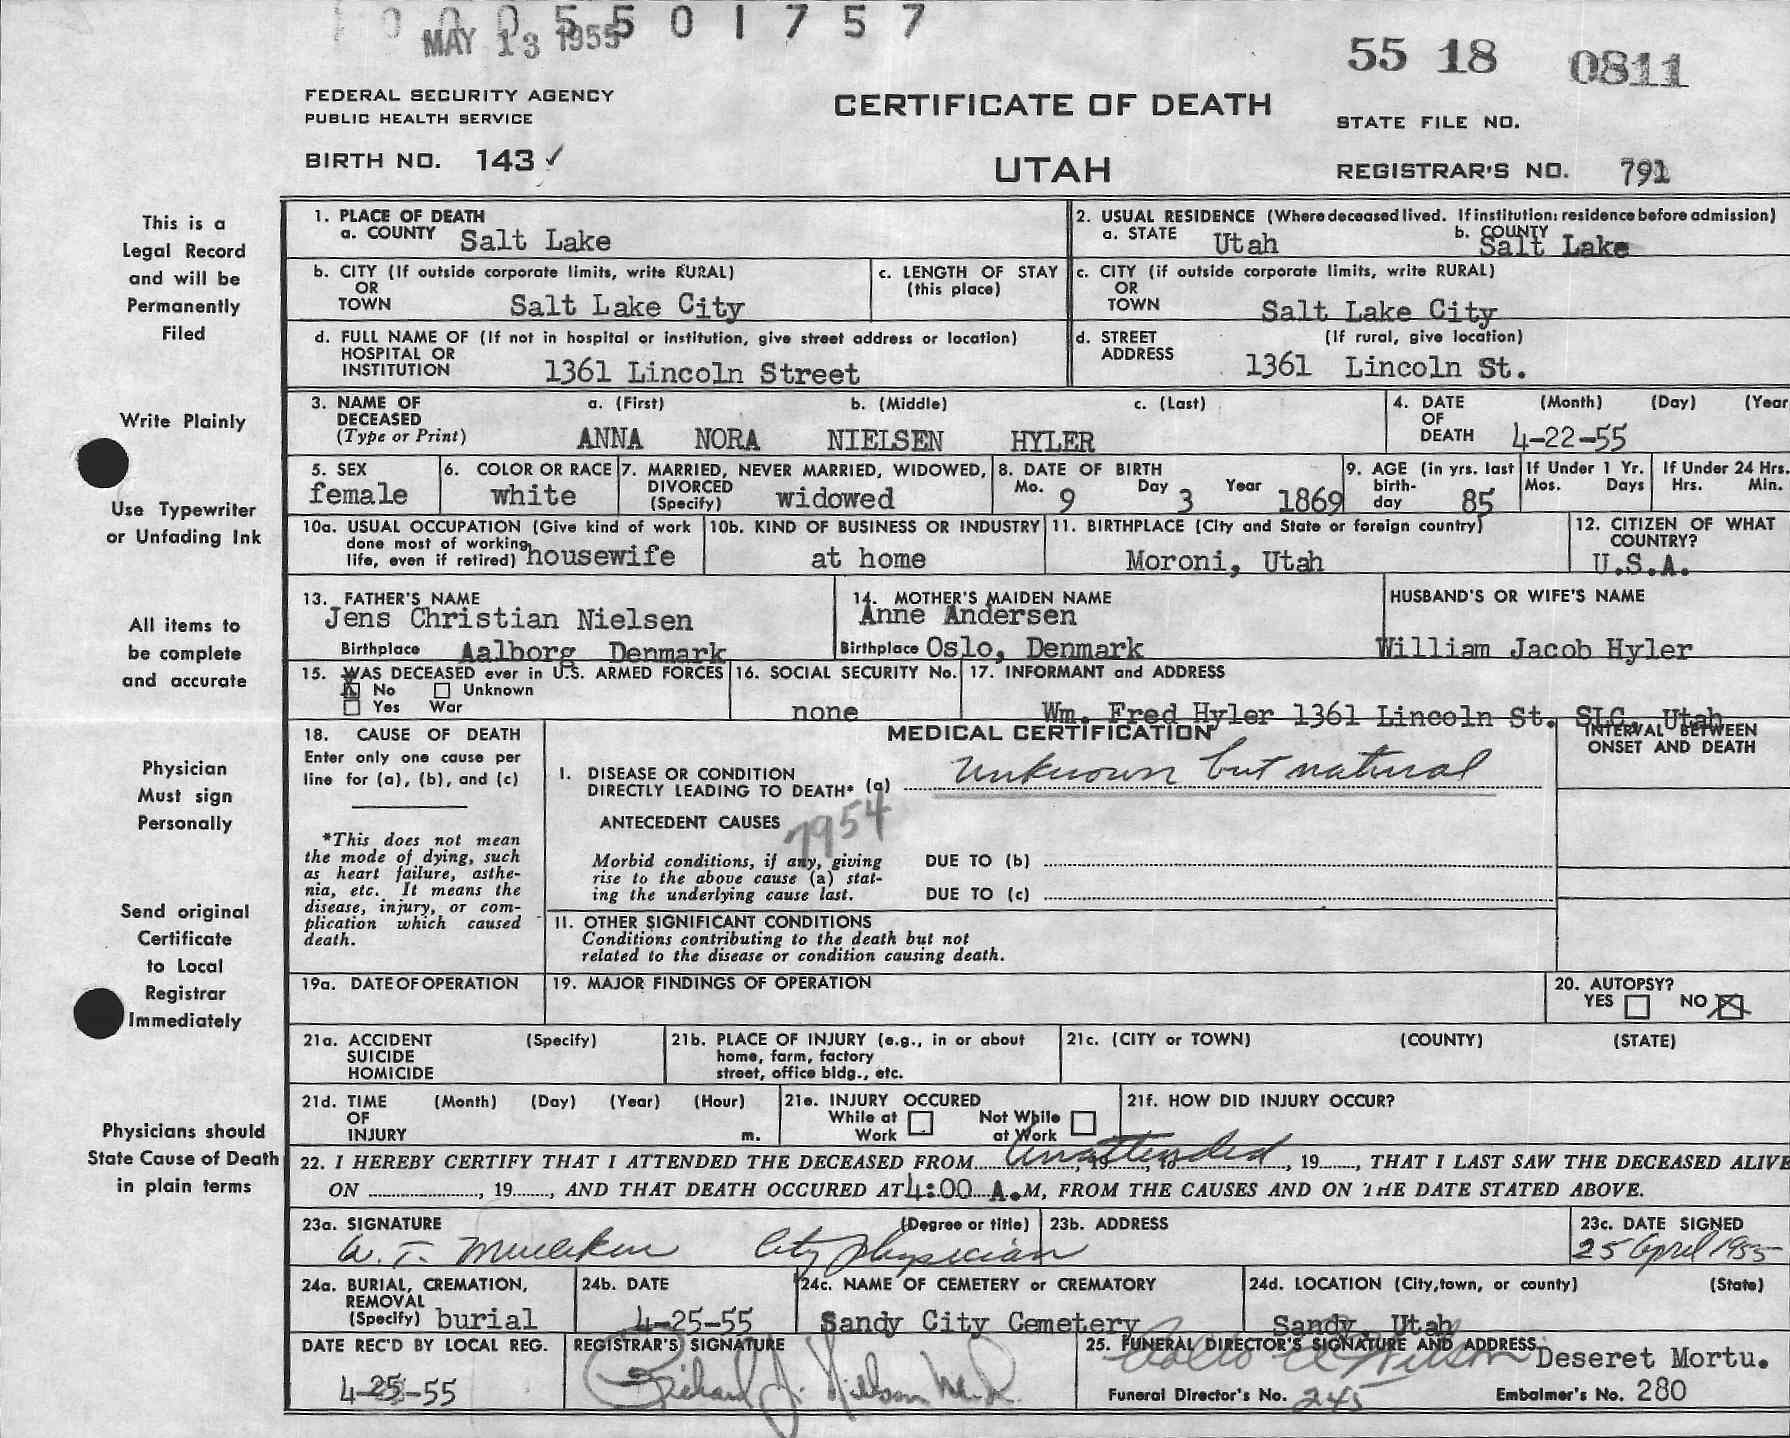 0 0 0 5 5 0 1 7 5 7
MAY 13 1955
55 18 0811
FEDERAL SECURITY AGENCY
PUBLIC HEALTH SERVICE
CERTIFICATE OF DEATH
STATE FILE NO.
BIRTH NO. 143 ✓
UTAH
REGISTRAR'S NO. 791
This is a
Legal Record
and will be
Permanently
Filed
Write Plainly
Use Typewriter
or Unfading Ink
All items to
be complete
and accurate
Physician
Must sign
Personally
Send original
Certificate
to Local
Registrar
Immediately
Physicians should
State Cause of Death
in plain terms
1. PLACE OF DEATH
a. COUNTY Salt Lake
2. USUAL RESIDENCE (Where deceased lived. If institution: residence before admission)
a. STATE Utah b. COUNTY Salt Lake
b. CITY (If outside corporate limits, write RURAL)
OR
TOWN Salt Lake City
c. LENGTH OF STAY
(this place)
c. CITY (if outside corporate limits, write RURAL)
OR
TOWN Salt Lake City
d. FULL NAME OF (If not in hospital or institution, give street address or location)
HOSPITAL OR
INSTITUTION 1361 Lincoln Street
d. STREET (If rural, give location)
ADDRESS 1361 Lincoln St.
3. NAME OF a. (First) b. (Middle) c. (Last)
DECEASED
(Type or Print) ANNA NORA NIELSEN HYLER
4. DATE (Month) (Day) (Year
OF
DEATH 4-22-55
5. SEX
female
6. COLOR OR RACE
white
7. MARRIED, NEVER MARRIED, WIDOWED,
DIVORCED
(Specify) widowed
8. DATE OF BIRTH
Mo. 9 Day 3 Year 1869
9. AGE (in yrs. last
birth-
day 85
If Under 1 Yr.
Mos. Days
If Under 24 Hrs.
Hrs. Min.
10a. USUAL OCCUPATION (Give kind of work
done most of working
life, even if retired) housewife
10b. KIND OF BUSINESS OR INDUSTRY
at home
11. BIRTHPLACE (City and State or foreign country)
Moroni, Utah
12. CITIZEN OF WHAT
COUNTRY?
U.S.A.
13. FATHER'S NAME
Jens Christian Nielsen
Birthplace Aalborg Denmark
14. MOTHER'S MAIDEN NAME
Anne Andersen
Birthplace Oslo, Denmark
HUSBAND'S OR WIFE'S NAME
William Jacob Hyler
15. WAS DECEASED ever in U.S. ARMED FORCES
X No Unknown
Yes War
16. SOCIAL SECURITY No.
none
17. INFORMANT and ADDRESS
Wm. Fred Hyler 1361 Lincoln St. SLC, Utah
18. CAUSE OF DEATH
Enter only one cause per
line for (a), (b), and (c)
*This does not mean
the mode of dying, such
as heart failure, asthe-
nia, etc. It means the
disease, injury, or com-
plication which caused
death.
MEDICAL CERTIFICATION
INTERVAL BETWEEN
ONSET AND DEATH
I. DISEASE OR CONDITION
DIRECTLY LEADING TO DEATH* (a) Unknown but natural
ANTECEDENT CAUSES 7954
Morbid conditions, if any, giving
rise to the above cause (a) stat-
ing the underlying cause last.
DUE TO (b)
DUE TO (c)
II. OTHER SIGNIFICANT CONDITIONS
Conditions contributing to the death but not
related to the disease or condition causing death.
19a. DATE OF OPERATION
19. MAJOR FINDINGS OF OPERATION
20. AUTOPSY?
YES NO X
21a. ACCIDENT (Specify)
SUICIDE
HOMICIDE
21b. PLACE OF INJURY (e.g., in or about
home, farm, factory
street, office bldg., etc.
21c. (CITY or TOWN) (COUNTY) (STATE)
21d. TIME (Month) (Day) (Year) (Hour)
OF
INJURY m.
21e. INJURY OCCURED
While at Work Not While at Work
21f. HOW DID INJURY OCCUR?
22. I HEREBY CERTIFY THAT I ATTENDED THE DECEASED FROM Unattended, 19, to, 19, THAT I LAST SAW THE DECEASED ALIVE
ON, 19, AND THAT DEATH OCCURED AT 4:00 A.M, FROM THE CAUSES AND ON THE DATE STATED ABOVE.
23a. SIGNATURE (Degree or title)
W. T. City Physician
23b. ADDRESS
23c. DATE SIGNED
25 April 1955
24a. BURIAL, CREMATION,
REMOVAL
(Specify) burial
24b. DATE
4-25-55
24c. NAME OF CEMETERY or CREMATORY
Sandy City Cemetery
24d. LOCATION (City,town, or county) (State)
Sandy, Utah
DATE REC'D BY LOCAL REG.
4-25-55
REGISTRAR'S SIGNATURE
Richard J.
25. FUNERAL DIRECTOR'S SIGNATURE AND ADDRESS
Deseret Mortu.
Funeral Director's No. 245 Embalmer's No. 280